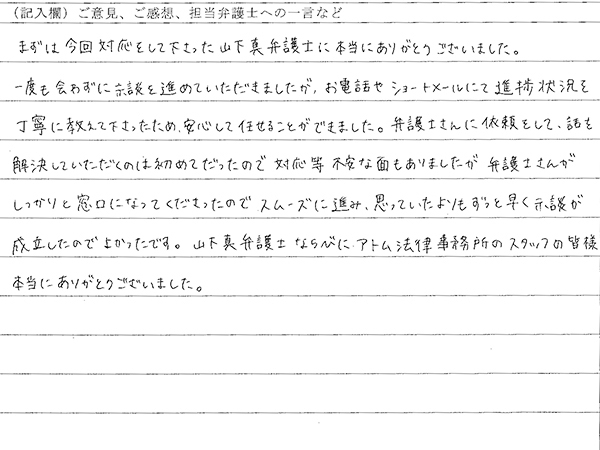 （記入欄）ご意見、ご感想、担当弁護士への一言など
まずは今回対応をして下さった山下真弁護士に本当にありがとうございました。
一度も会わずに示談を進めていただきましたが、お電話やショートメールにて進捗状況を
丁寧に教えて下さったため、安心して任せることができました。弁護士さんに依頼をして、話も
解決していただくのは初めてだったので対応等不安な面もありましたが弁護士さんが
しっかりと窓口になってくださったのでスムーズに進み、思っていたよりもずっと早く示談が
成立したのでよかったです。山下真弁護士ならびに、アトム法律事務所のスタッフの皆様
本当にありがとうございました。